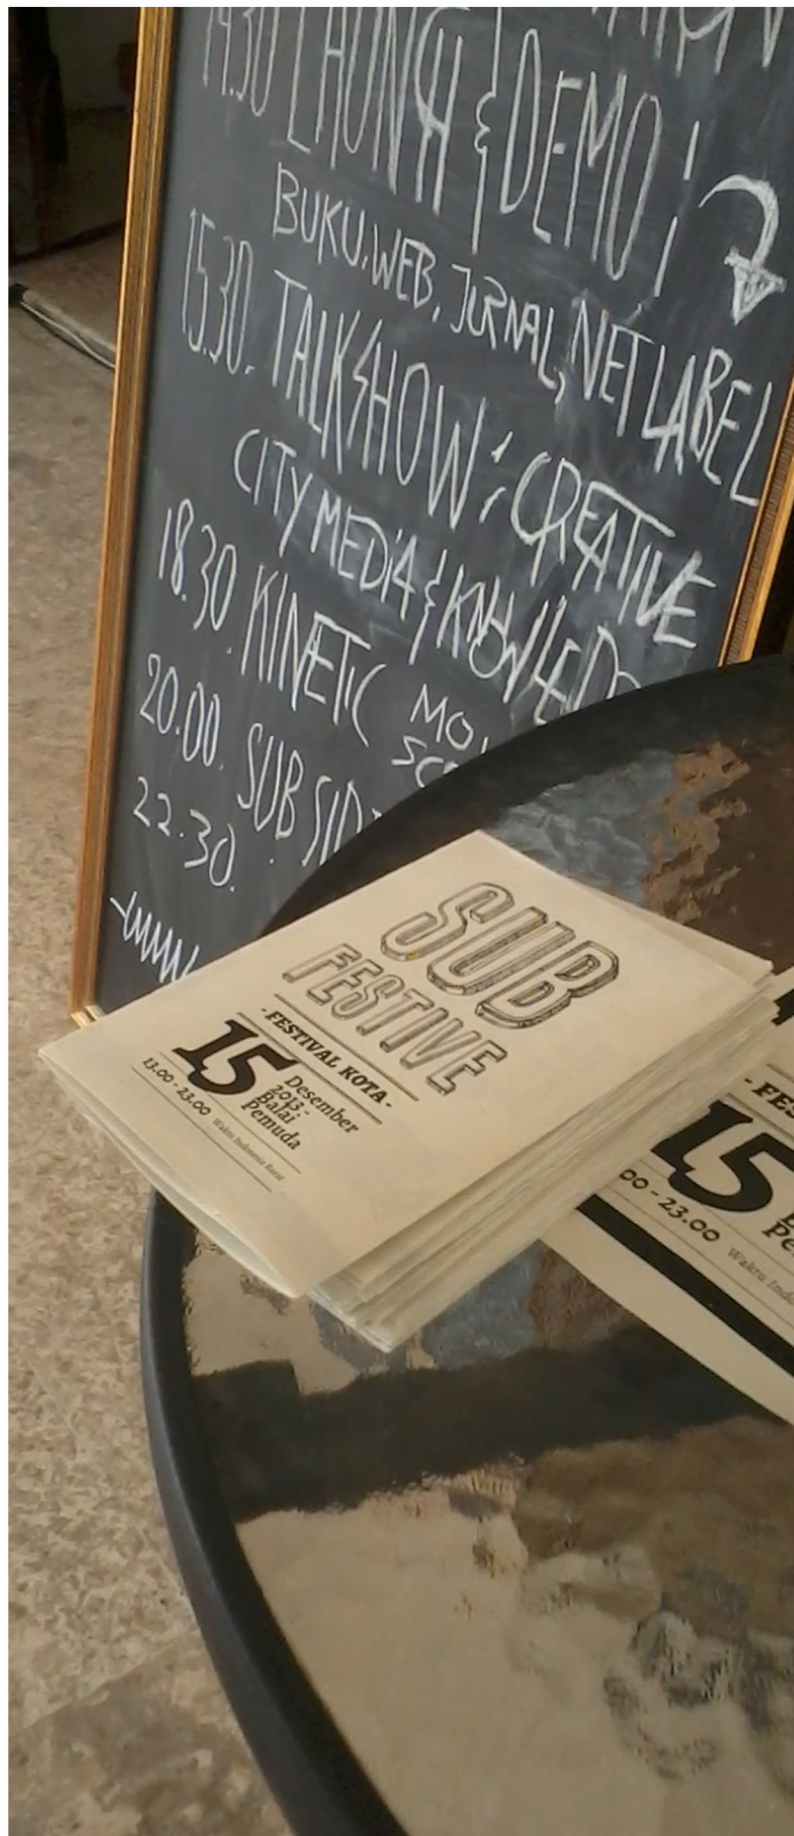 14.30 LAUNCH & DEMO :
BUKU, WEB, JURNAL, NETLABEL
15.30. TALKSHOW : CREATIVE
CITY MEDIA & KNOWLEDG
18.30. KINETIC
20.00. SUB
22.30.
SUB
FESTIVE
- FESTIVAL KOTA -
15 Desember
2013 -
Balai
Pemuda
13.00 - 23.00 Waktu Indonesia Barat
- FES
15
00 - 23.00 Waktu Indo